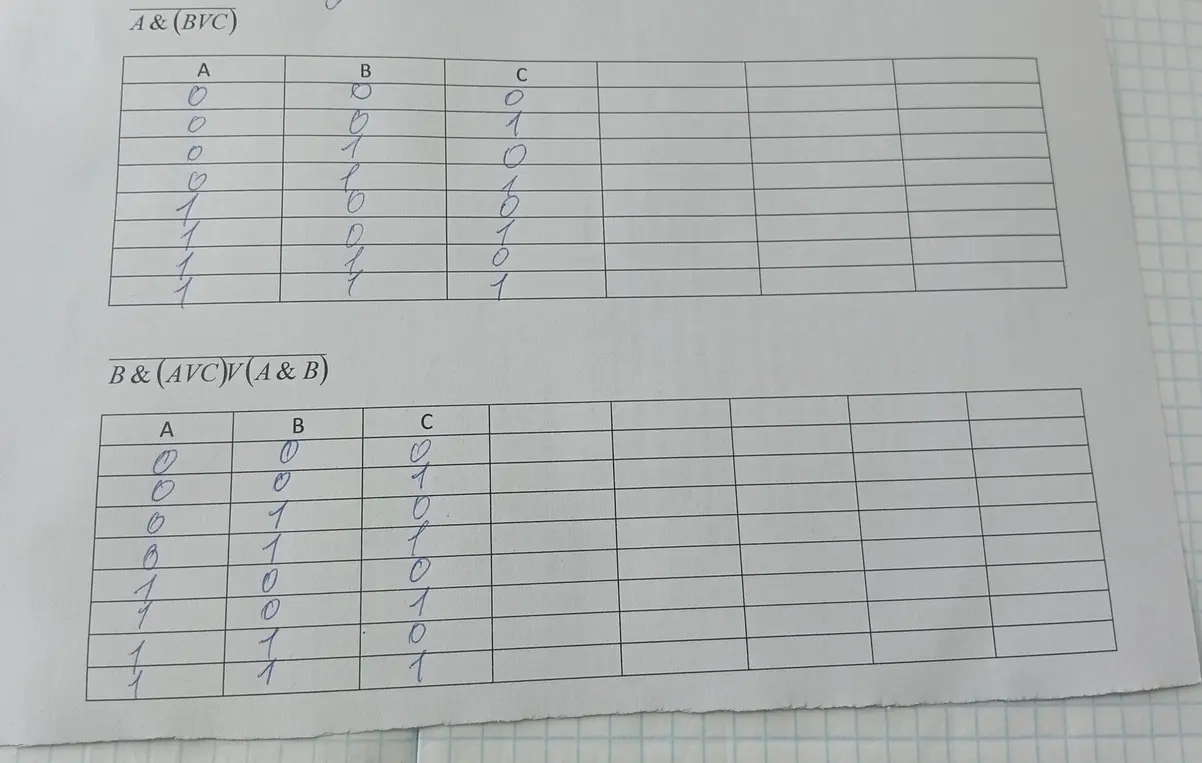 A & (BVC)
A B C
0 0 0
0 0 1
0 1 0
0 1 1
1 0 0
1 0 1
1 1 0
1 1 1
B & (AVC)V(A & B)
A B C
0 0 0
0 0 1
0 1 0
0 1 1
1 0 0
1 0 1
1 1 0
1 1 1